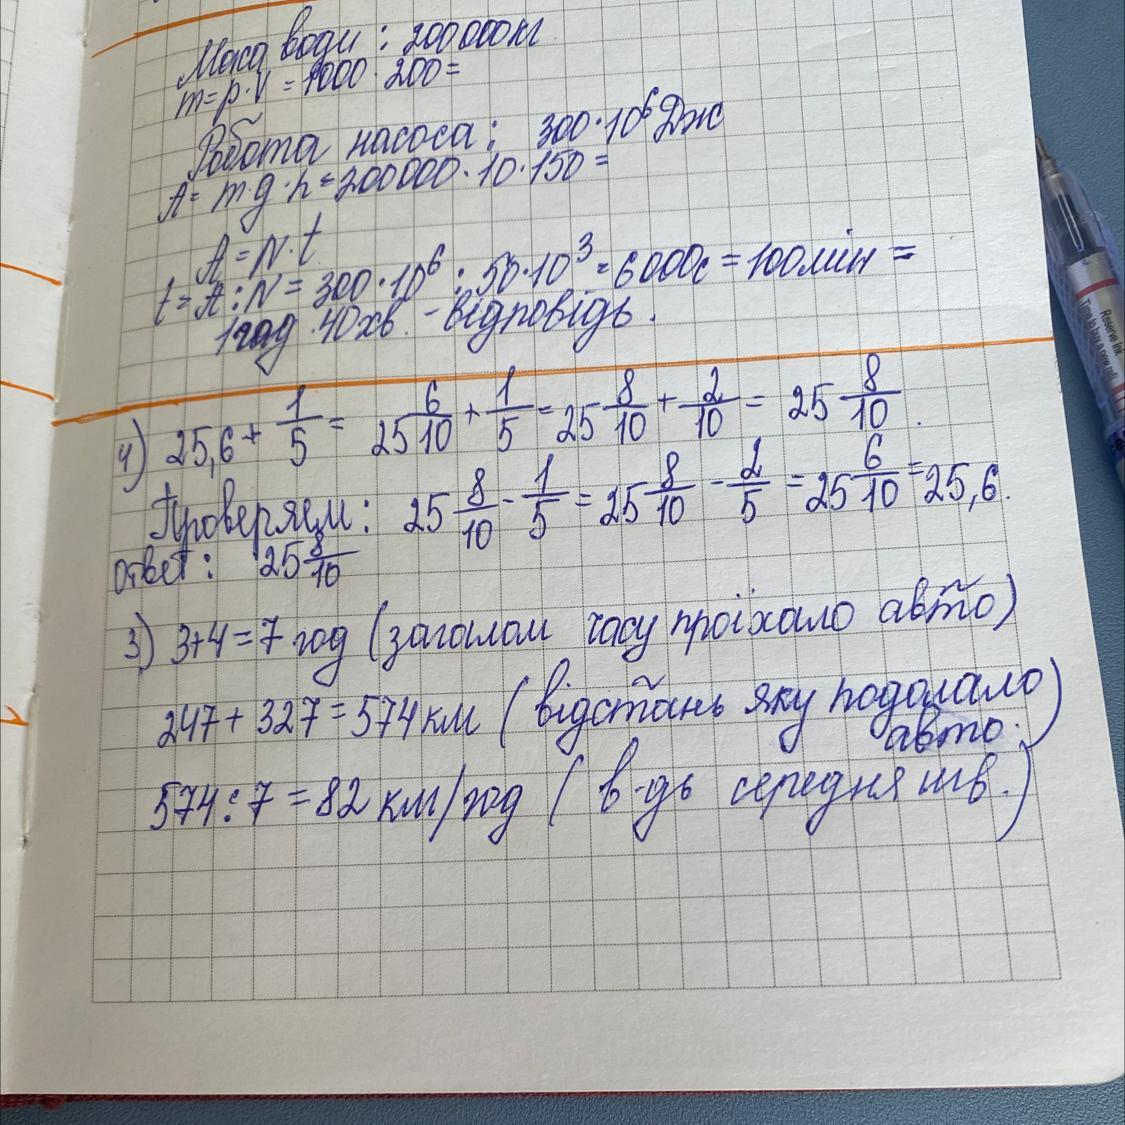 Маса води : 200 000кг
m=ρ·V = 1000 · 200=
Робота насоса: 300·10⁶Дж
A= m·g·h=200000·10·150=
A=N·t
t=A:N= 300·10⁶ : 50·10³=6000с=100мін=
1год 40хв. - відповідь.
4) 25,6+ 1/5 = 25 6/10 + 1/5 = 25 8/10 + 2/10 = 25 8/10 .
Проверяем: 25 8/10 - 1/5 = 25 8/10 - 2/5 = 25 6/10 = 25,6.
Ответ: 25 8/10
3) 3+4=7 год (загалом часу проїхало авто)
247+ 327=574км (відстань яку подолало
авто.)
574:7 =82 км/год ( в-дь середня шв.)
Reserve Ink
Time to buy a new refill